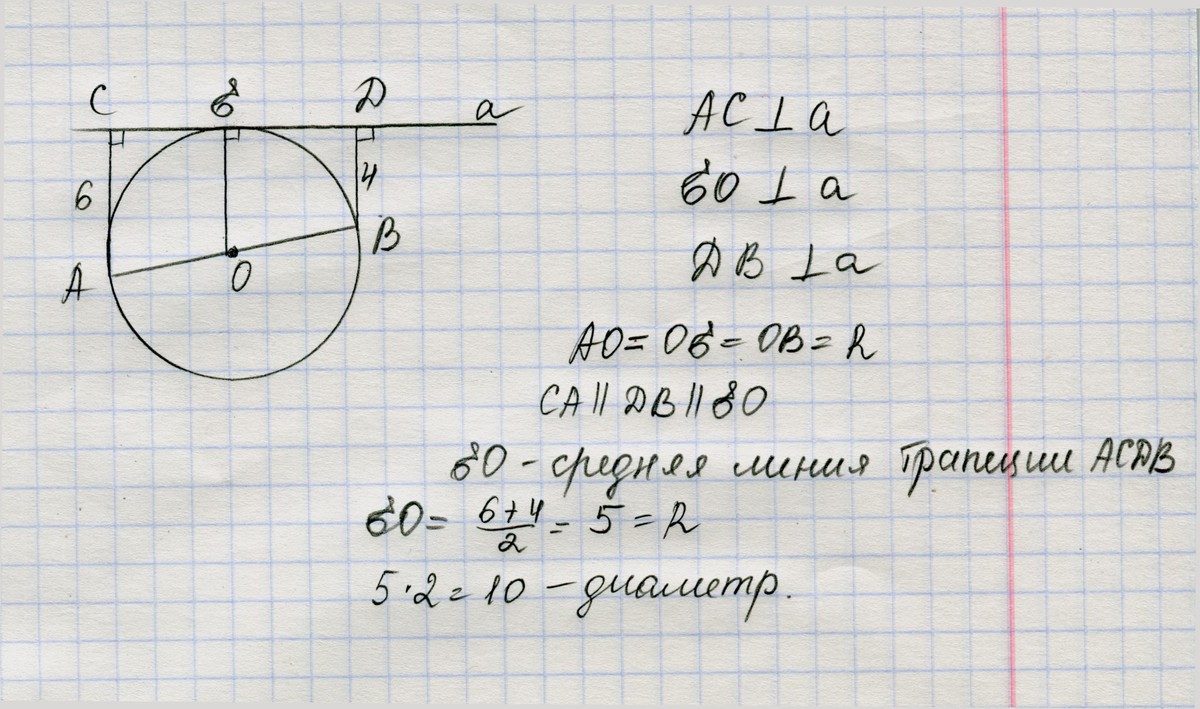 C Б Д a
6 4
A O B
AC ⊥ a
БО ⊥ a
ДВ ⊥ a
AO = OБ = OB = R
CA || ДВ || БО
БО - средняя линия трапеции АСДВ
БО = (6+4)/2 = 5 = R
5·2 = 10 - диаметр.